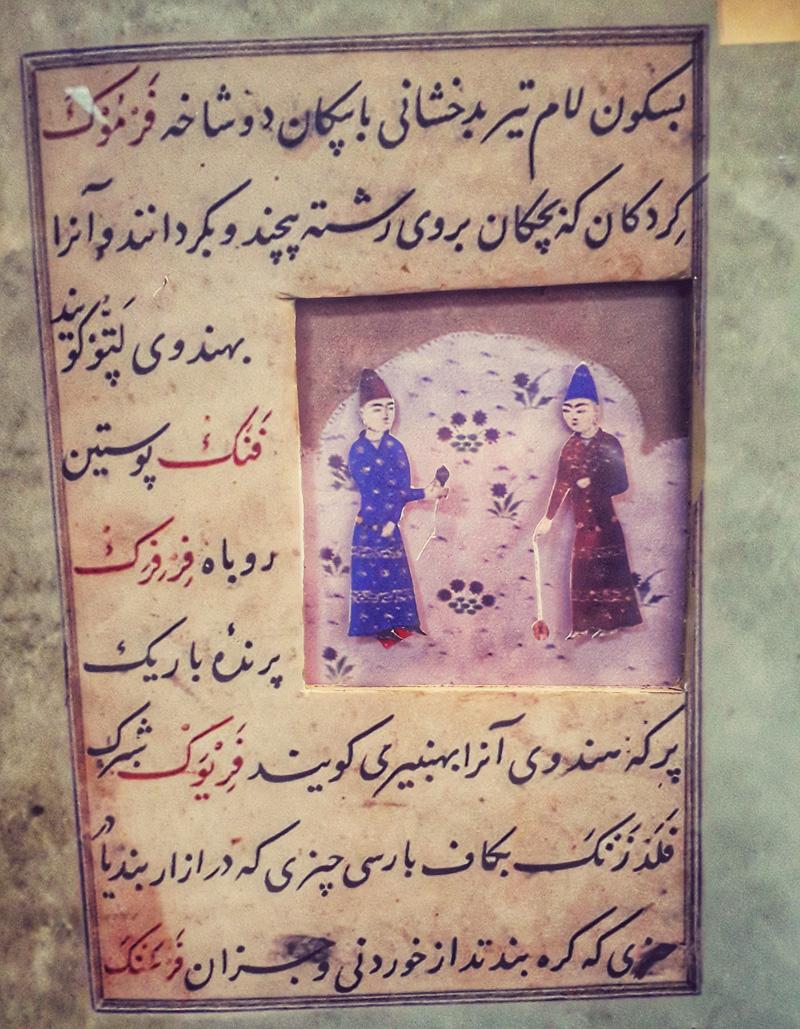 بسکون لام تیر بدخشانی باپیکان دوشاخه فَرْمُوْک
کِردکان که بچکان بروی رشته پیچند و بکردانند و آنرا
بهندوی لَتُّوْ کویند
فَنَک پوستین
روباه فِرْفِرَک
پرندهٔ باریک
پر که هندوی آنرا بهنبیری کویند فَرِیْوَک شبرک
فَلَدْزَنْک بکاف پارسی چیزی که در ازاربند یا در
چیزی که کره بندند از خوردنی و جزان